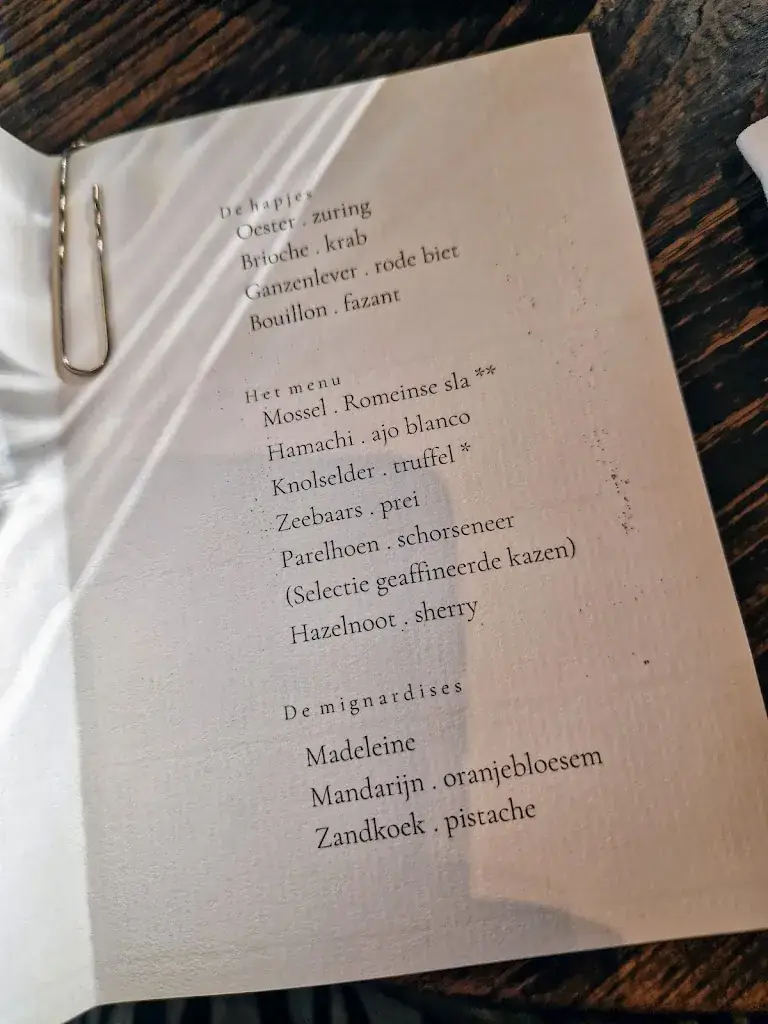 De hapjes
Oester . zuring
Brioche . krab
Ganzenlever . rode biet
Bouillon . fazant
Het menu
Mossel . Romeinse sla **
Hamachi . ajo blanco
Knolselder . truffel *
Zeebaars . prei
Parelhoen . schorseneer
(Selectie geaffineerde kazen)
Hazelnoot . sherry
De mignardises
Madeleine
Mandarijn . oranjebloesem
Zandkoek . pistache